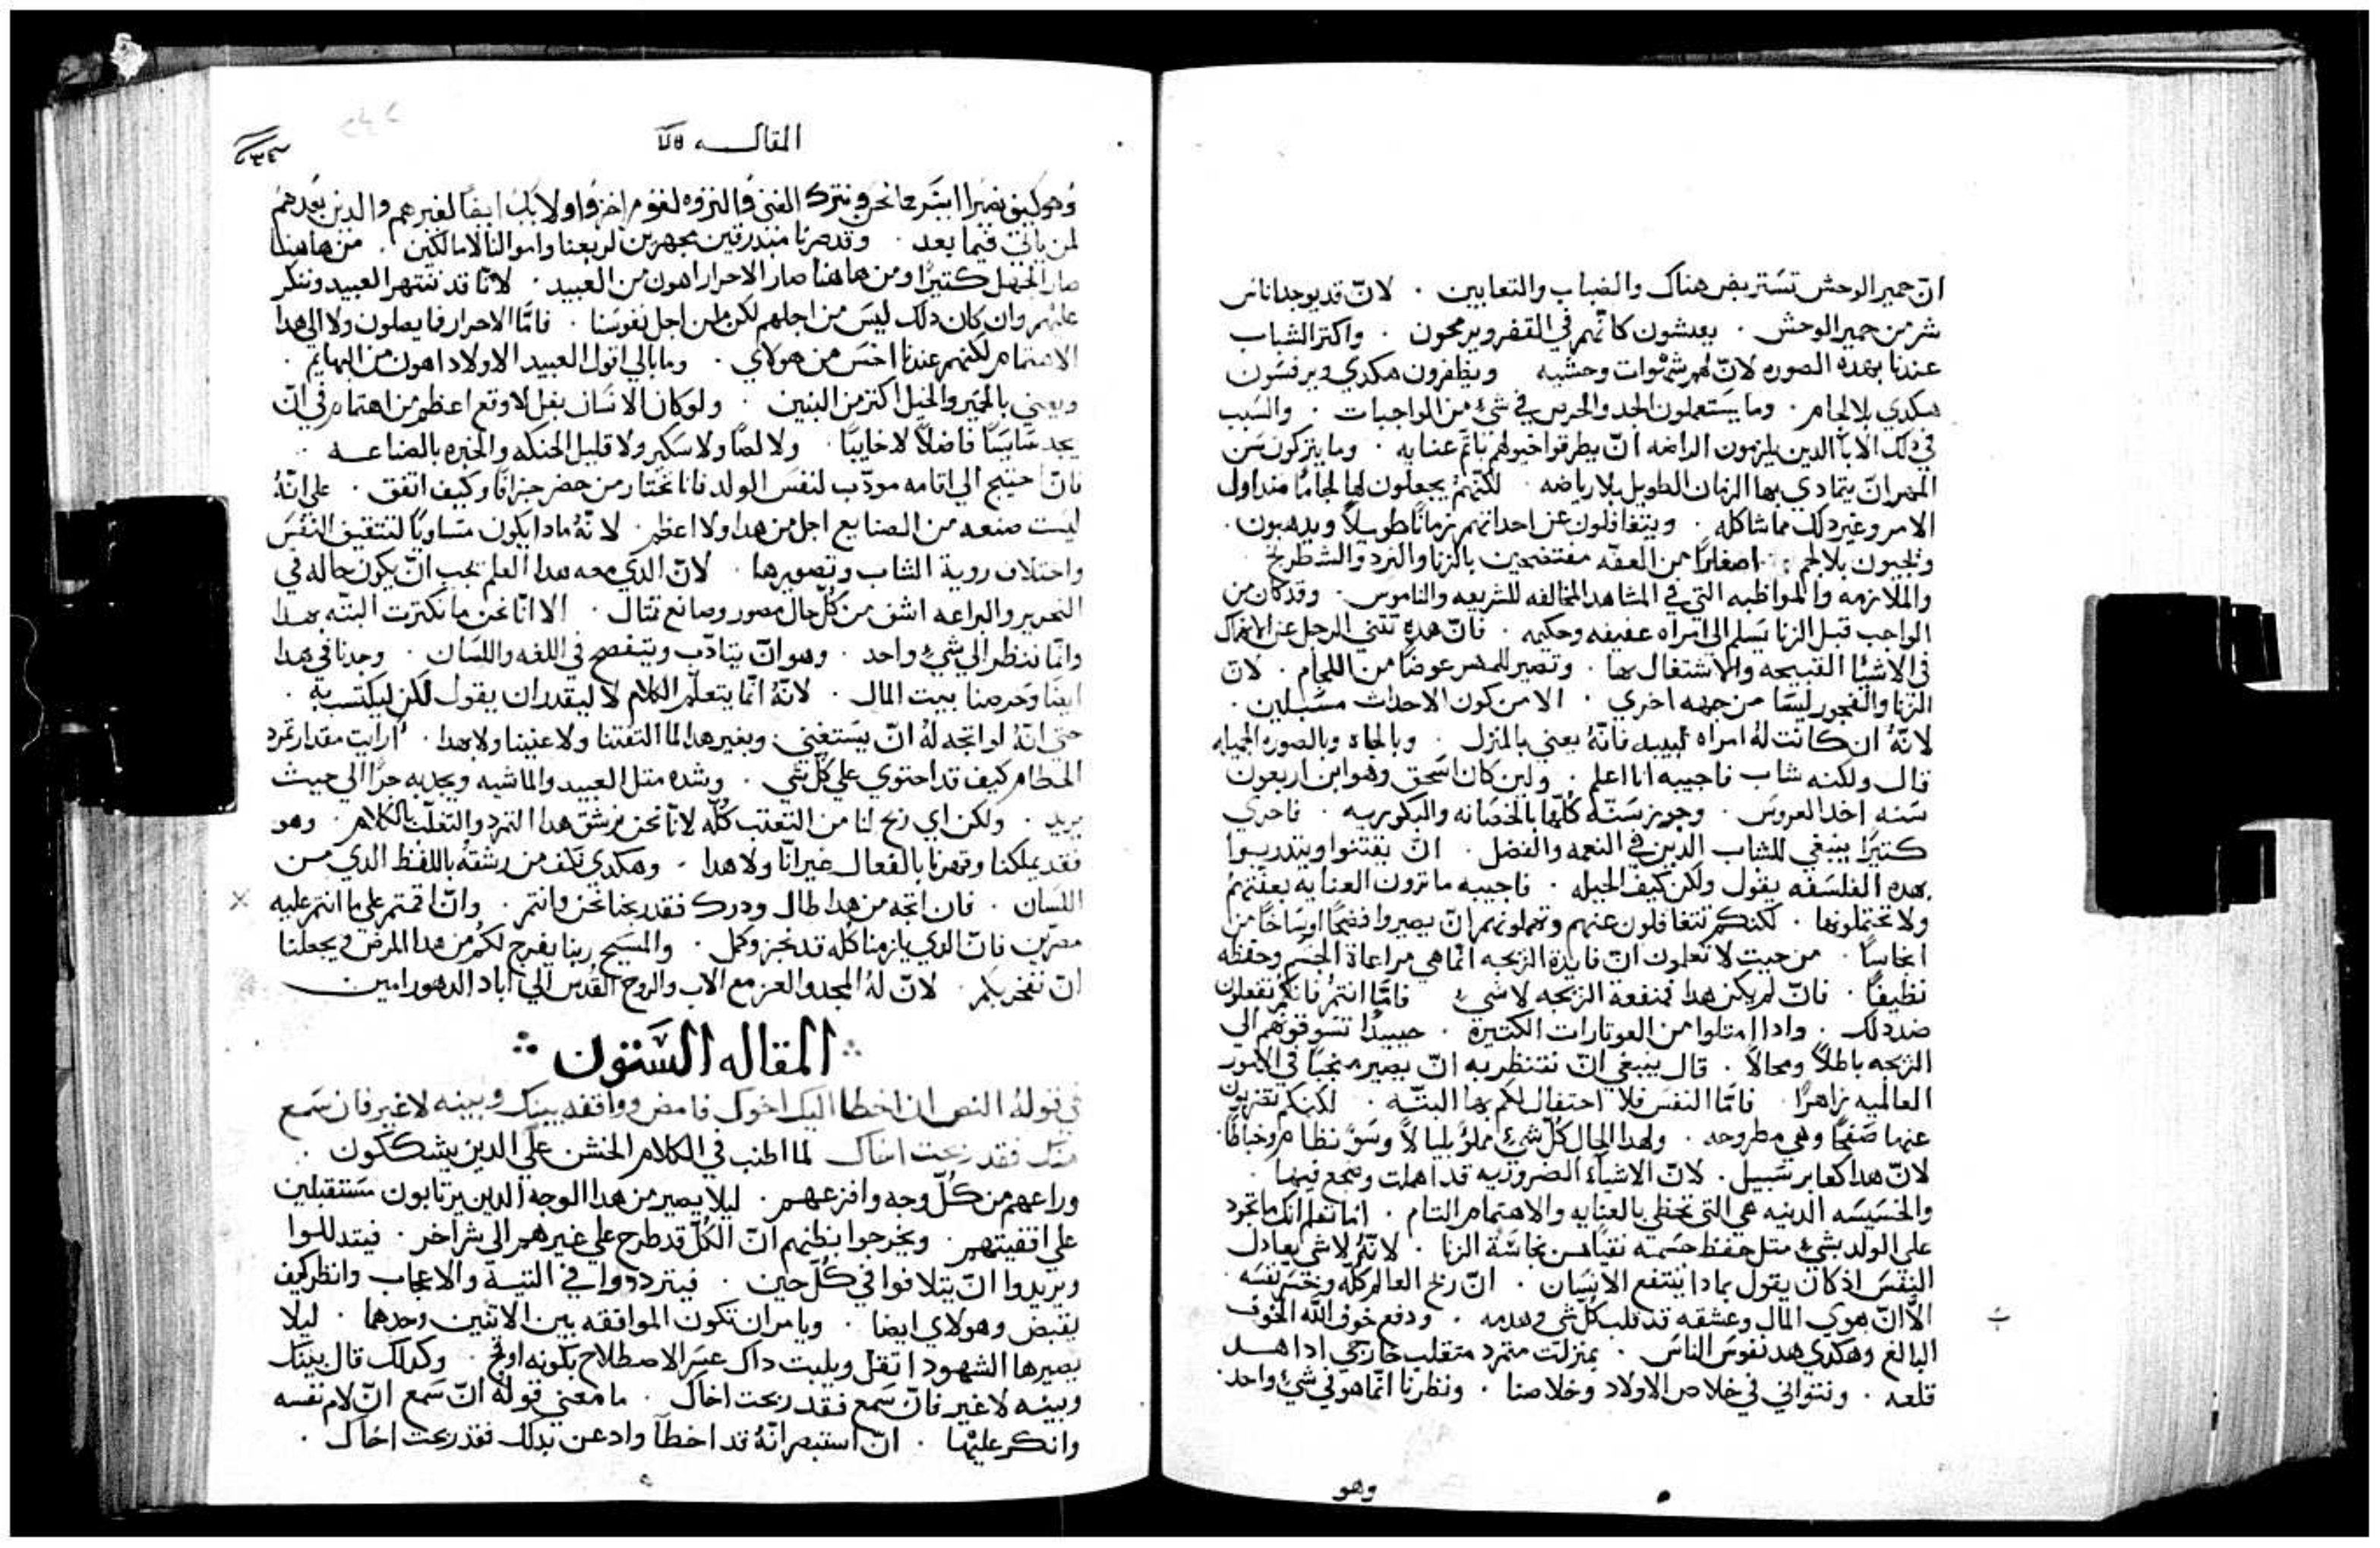 انّ حمير الوحش تستريض هناك والضباب والتعابين . لانّ قد يوجد اناس
شر من حمير الوحش . يعيشون كانّهم في القفر ويرمحون . واكتر الشباب
عندنا بهده الصوره لانّ لهم شهوات وحشيه ويطفرون هكدي ويرفسون
هكدي بلا لجام . وما يستعملون الجد والحرص في شيء من الواجبات . والسبب
في دلك الابا الدين يلزمون الراضه انّ يطرقوا خيولهم باتم عنايه . وما يتركون سن
المهر انّ يتمادي بها الزمان الطويل بلا رياضه . لكنّهم يجعلون لها لجامًا منداول
الامر وغير دلك مما شاكله . ويتغافلون عن احداتهم زمانًا طويلاً ويدهبون .
ويجيبون بلا لجم اصفارًا من العفه مفتضحين بالزنا والنرد والشطرنج
والملازمه والمواظبه التي في المشاهد المخالفه للشريعه والناموس . وقد كان من
الواجب قبل الزنا يسلم الي امراه عفيفه وحكيمه . فانّ هده تتني الرجل عن الانهماك
في الاشيا القبيحه والاشتغال بها . وتصير للمهر عوضًا من اللجام . لانّ
الزنا والفجور ليسا من جهه اخري . الا من كون الاحداث مسبلين .
لانّهُ ان كانت لهُ امراه لبيبه فانّهُ يعني بالمنزل . وبالجاه وبالصوره الجميله
قال ولكنه شاب فاجيبه انا اعلم . ولين كان اسحق وهو ابن اربعون
سنه اخد العروس . وجوز سنّه كلّها بالحصانه والبكوريه . فاحري
كتيرًا ينبغي للشاب الدين في النعمه والفضل . انّ يقتنوا ويتدربوا
بهده الفلسفه يقول ولكن كيف الحيله . فاجيبه ما ترون العنايه بعفّتهمُ
ولا تحتملونها . لكنكم تتغافلون عنهم وتهملونهم انّ يصيروا فضحًا اوساخًا من
انجاسًا . من حيت لا تعلمون انّ فايدة الزيجه انّما هي مراعاة الجسم وحفظه
نظيفًا . فانّ لم يكن هدا فمنفعة الزيجه لا شيء فامّا انتمُ فانكم تفعلون
ضد دلك . وادا امتلوا من العوتارات الكتيرة . حينيدٍ تسوقوهم الي
الزيجه باطلاً ومحالاً . قال ينبغي انّ ننتظر به انّ يصير منجبًا في الامور
العالميه زاهرًا . فامّا النفس فلا احتفال لكم بها البتّه . لكنكم تقنزون
عنها صفحًا وهي مطروحه . ولهدا الحال كلّ شيء مملوّ بلبالاً وسوّ نظام وخباطًا .
لانّ هدا كعابر سبيل . لانّ الاشيآء الضروريه قد اهملت وضجع فيها .
والخسيسه الدنيه هي التي تحظي بالعنايه والاهتمام التام . اما تعلم انّك ما تجود
علي الولد بشيء متل حفظ جسمه نقيًا من نجاسة الزنا . لانّهُ لا شي يعادل
النفس اد كان يقول بمادا ينتفع الانسان . انّ ربح العالم كلّه وخسر نفسه .
الّا انّ هوي المال وعشقه قد قلب كلّ شي وهدمه . ودفع خوف الله الخوف
البالغ وهكدي هد نفوس الناس . بمنزلت متمرد متقلب خارجي ادا هد
قلعه . ونتواني في خلاص الاولاد وخلاصنا . ونظرنا انّما هو في شيء واحد .
وهو
المقاله ٥٩
وهو كيف نصير ايسر حالا نحن ونترك الغني والتروه لقوم اخر واولايك ايضًا لغيرهم والدين بعدهم
لمن ياتي فيما بعد . وقد صرنا مبدرقين مجهزين لربعنا واموالنا لا مالكين . من هاهنا
صار الجهل كتيرًا ومن هاهنا صار الاحرار اهون من العبيد . لانّا قد ننتهر العبيد وننكر
عليهم وان كان دلك ليس من اجلهم لكن من اجل نفوسنا . فامّا الاحرار فما يصلون ولا الي هدا
الاهتمام لكنهم عندنا اخس من هولاي . وما بالي اقول العبيد الاولاد اهون من البهايم .
ويعني بالحمير والخيل اكتر من البنين . ولو كان لانسان بغل لاوقع اعظم من اهتمام في انّ
يجد سايسًا فاضلاً لا خايبًا . ولا لصًا ولا سكير ولا قليل الحنكه والخبره بالصناعه
فانّ احتيج الي اقامه مودّب لنفس الولد فانا نختار من حضر جزافًا وكيف اتفق . علي انّهُ
ليست صنعه من الصنايع اجل من هدا ولا اعظم . لانّهُ مادا يكون مساويًا لتتقيف النفس
واختلاف روية الشاب وتصويرها . لانّ الدي معه هدا العلم يجب انّ يكون حاله في
التحرير والبراعه اشف من كلّ حال مصور وصانع تتال . الا انّا نحن ما نكترت البتّه بهدا
وانّما ننظر الي شيء واحد . وهو انّ يتادّب ويتفصح في اللغه واللسان . وجدنا في هدا
ايضًا وحرصنا ببيت المال . لانّهُ انّما يتعلّم الكلام لا ليقدر ان يقول لكن ليكتسب به .
حتي انّهُ لو اتجه لهُ انّ يستغني وبغير هدا لما التفتنا ولا عنينا ولا بهدا . ارايت مقدار تمرد
الحطام كيف قد احتوي علي كلّ شي . وشده متل العبيد والماشيه ويجدبه جرًا الي حيث
يريد . ولكن اي ربح لنا من التعتب كلّه لانّا نحن نرشق هدا التمرد والتغلّب بالكلام . وهو
فقد يملكنا وقهرنا بالفعال غير انّا ولا هدا . وهكدي نكف من رشقهُ باللفظ الدي من
اللسان . فان اتجه من هدا طال ودرك فقد ربحنا نحن وانتم . وانّ اقمتم علي ما انتم عليه
مصرّين فانّ الدي يلزمنا كله قد نجز وكمل . والمسيح ربنا يفرج لكم من هدا المرض ويجعلنا
انّ نفخر بكم . لانّ لهُ المجد والعز مع الاب والروح القدس الي اباد الدهور امين
المقاله الستون
في قولهُ النص ان اخطا اليك اخوك فامض ووافقه بينك وبينه لا غير فان سمع
منك فقد ربحت اخاك لما اطنب في الكلام الخشن علي الدين يشككون .
وراعهم من كلّ وجه وافزعهم . ليلا يصير من هدا الوجه الدين يرتابون مستقبلين
علي اقفيتهم . ويخرجوا بظنهم انّ الكلّ قد طرح علي غيرهم الي شر اخر . فيتدللوا
ويريدوا انّ يتلافوا في كلّ حين . فيترددوا في التيه والاعجاب وانظر كيف
يقبض وهولاي ايضا . ويامر ان تكون الموافقه بين الاتنين وحدهما . ليلا
يصيرها الشهود اتقل ويلبت داك عسر الاصطلاح بكونه اوقح . وكدلك قال بينك
وبينه لا غير فانّ سمع فقد ربحت اخاك . ما معني قوله انّ سمع انّ لام نفسه
وانكر عليها . انّ استبصر انّهُ قد اخطآ وادعن بدلك فقد ربحت اخاك .